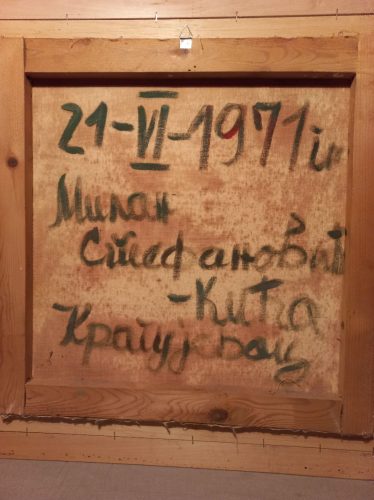 21-VI-1971 г
Милан
Стефановић
-Кића
Крагујевац